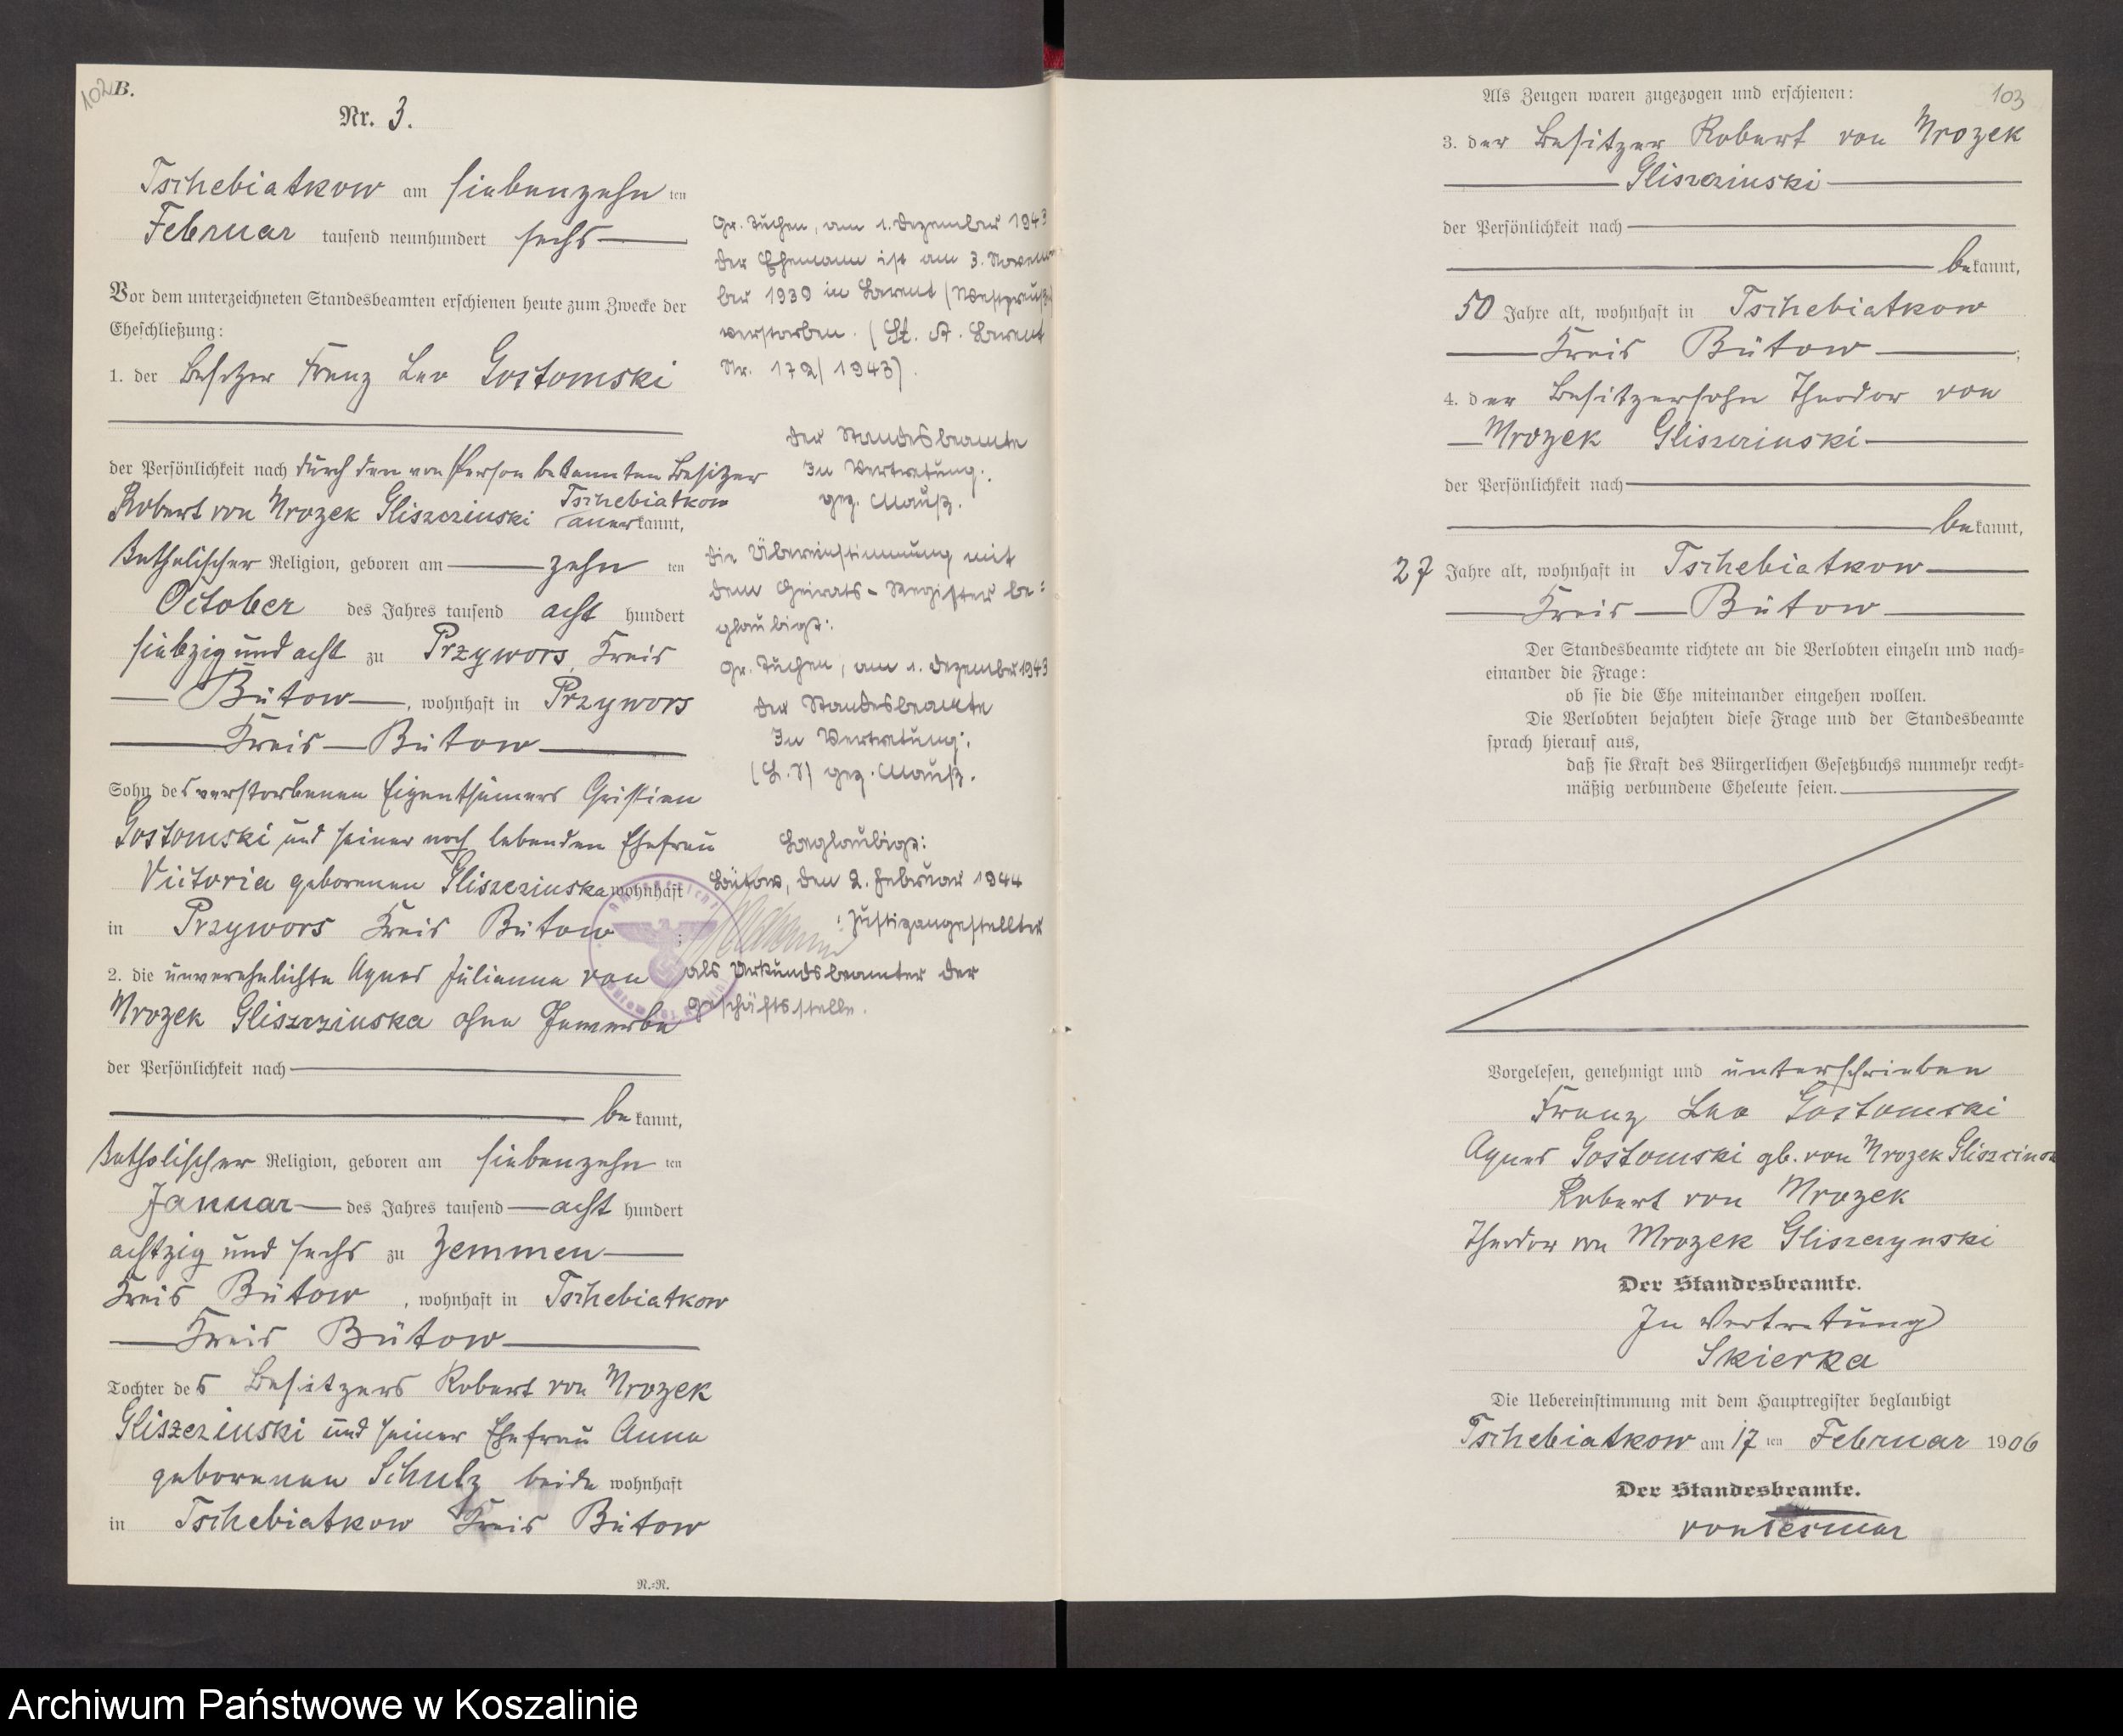 102
B.
Nr. 3.
Tschebiatkow am siebenzehn ten
Februar tausend neunhundert sechs
Vor dem unterzeichneten Standesbeamten erschienen heute zum Zwecke der
Eheschließung:
1. der Besitzer Franz Leo Gostomski
der Persönlichkeit nach durch den von Person bekannten Besitzer
Robert von Mrozek Gliszczinski Tschebiatkow
anerkannt,
katholischer Religion, geboren am zehn ten
October des Jahres tausend acht hundert
siebzig und acht zu Przywors, Kreis
Bütow, wohnhaft in Przywors
Kreis Bütow
Sohn des verstorbenen Eigenthümers
Gostomski und seiner noch lebenden Ehefrau
Victoria geborenen Gliszczinska wohnhaft
in Przywors Kreis Bütow;
2. die unverehelichte Agnes Julianna von
Mrozek Gliszczinska ohne Gewerbe
der Persönlichkeit nach
bekannt,
katholischer Religion, geboren am siebenzehn ten
Januar des Jahres tausend acht hundert
achtzig und sechs zu Zemmen
Kreis Bütow, wohnhaft in Tschebiatkow
Kreis Bütow
Tochter des Besitzers Robert von Mrozek
Gliszczinski und seiner Ehefrau Anna
geborenen Schulz beide wohnhaft
in Tschebiatkow Kreis Bütow
R.=R.
Gr. Tuchen, am 1. Dezember 1943
Der Ehemann ist am 3. Novem
ber 1939 in (Westpreuß)
verstorben. (St. A.
Nr. 172/1943).
Der Standesbeamte
In Vertretung:
gez. Mauß.
Die Übereinstimmung mit
dem Heirats-Register be=
glaubigt:
Gr. Tuchen, am 1. Dezember 1943
Der Standesbeamte
In Vertretung:
(L.S) gez. Mauß.
Beglaubigt:
Bütow, den 2. Februar 1944
Justizangestellter
als Urkundsbeamter der
Geschäftsstelle.
103
Als Zeugen waren zugezogen und erschienen:
3. der Besitzer Robert von Mrozek
Gliszczinski
der Persönlichkeit nach
bekannt,
50 Jahre alt, wohnhaft in Tschebiatkow
Kreis Bütow;
4. der Besitzersohn Theodor von
Mrozek Gliszczinski
der Persönlichkeit nach
bekannt,
27 Jahre alt, wohnhaft in Tschebiatkow
Kreis Bütow
Der Standesbeamte richtete an die Verlobten einzeln und nach=
einander die Frage:
ob sie die Ehe miteinander eingehen wollen.
Die Verlobten bejahten diese Frage und der Standesbeamte
sprach hierauf aus,
daß sie Kraft des Bürgerlichen Gesetzbuchs nunmehr recht=
mäßig verbundene Eheleute seien.
Vorgelesen, genehmigt und unterschrieben
Franz Leo Gostomski
Agnes Gostomski gb. von Mrozek
Robert von Mrozek
Theodor von Mrozek Gliszczynski
Der Standesbeamte.
In Vertretung
Skierka
Die Uebereinstimmung mit dem Hauptregister beglaubigt
Tschebiatkow am 17 ten Februar 1906
Der Standesbeamte.
Archiwum Państwowe w Koszalinie